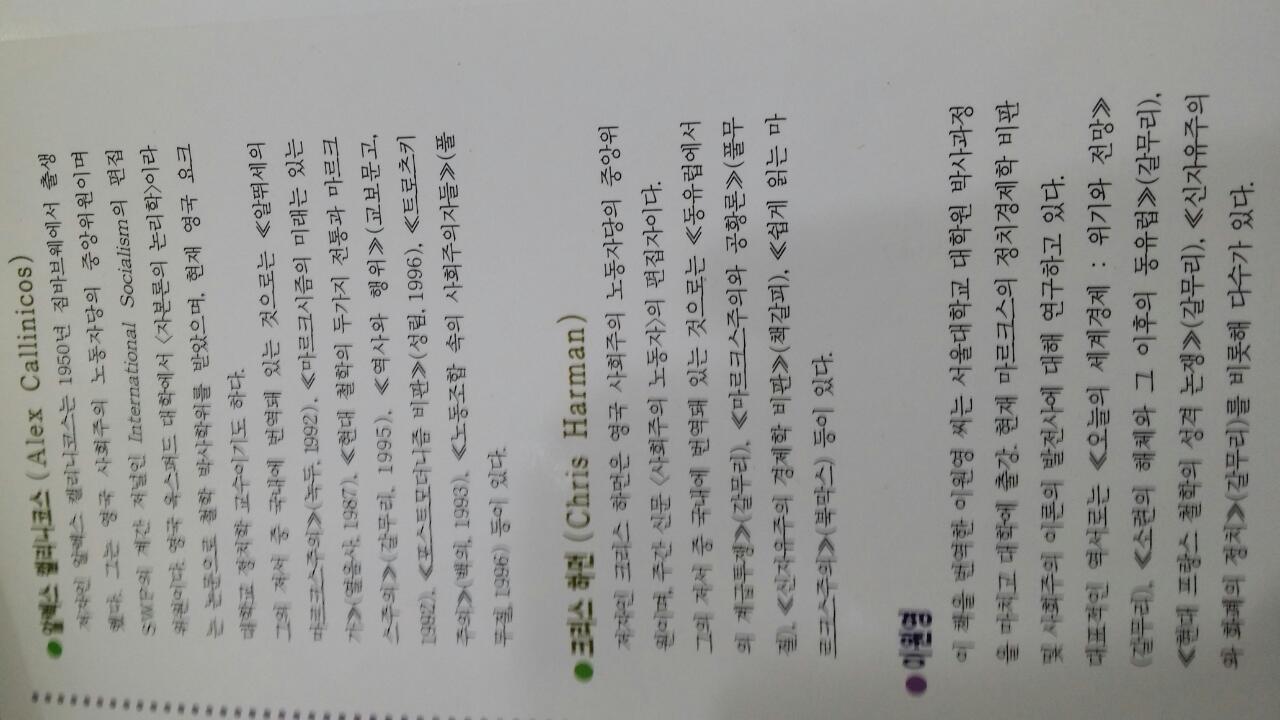 ●알렉스 캘리니코스 (Alex Callinicos)
저자인 알렉스 캘리니코스는 1950년 짐바브웨에서 출생
했다. 그는 영국 사회주의 노동자당의 중앙위원이며
SWP의 계간 저널인 International Socialism의 편집
위원이다. 영국 옥스퍼드 대학에서 〈자본론의 논리학〉이라
는 논문으로 철학 박사학위를 받았으며, 현재 영국 요크
대학교 정치학 교수이기도 하다.
그의 저서 중 국내에 번역돼 있는 것으로는 ≪알뛰세의
마르크스주의≫(녹두, 1992), ≪마르크시즘의 미래는 있는
가≫(열음사, 1987), ≪현대 철학의 두가지 전통과 마르크
스주의≫(갈무리, 1995), ≪역사와 행위≫(교보문고,
1992), ≪포스트모더니즘 비판≫(성림, 1996), ≪트로츠키
주의≫(백의, 1993), ≪노동조합 속의 사회주의자들≫(풀
무질, 1996) 등이 있다.
●크리스 하먼 (Chris Harman)
저자인 크리스 하먼은 영국 사회주의 노동자당의 중앙위
원이며, 주간 신문 〈사회주의 노동자〉의 편집자이다.
그의 저서 중 국내에 번역돼 있는 것으로는 ≪동유럽에서
의 계급투쟁≫(갈무리), ≪마르크스주의와 공황론≫(풀무
질), ≪신자유주의 경제학 비판≫(책갈피), ≪쉽게 읽는 마
르크스주의≫(북막스) 등이 있다.
●이원영
이 책을 번역한 이원영 씨는 서울대학교 대학원 박사과정
을 마치고 대학에 출강. 현재 마르크스의 정치경제학 비판
및 사회주의 이론의 발전사에 대해 연구하고 있다.
대표적인 역서로는 ≪오늘의 세계경제 : 위기와 전망≫
(갈무리), ≪소련의 해체와 그 이후의 동유럽≫(갈무리),
≪현대 프랑스 철학의 성격 논쟁≫(갈무리), ≪신자유주의
와 화폐의 정치≫(갈무리)를 비롯해 다수가 있다.